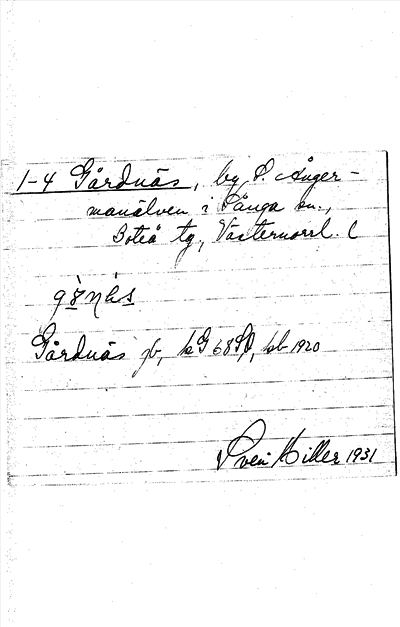 1-4 Gårdnäs, by S. Ånger-
manälven i Sånga sn.,
Boteå tg, Västernorrl. l
Gårdnäs jb, kG 68 SO, sb 1920
Sven Hiller 1931